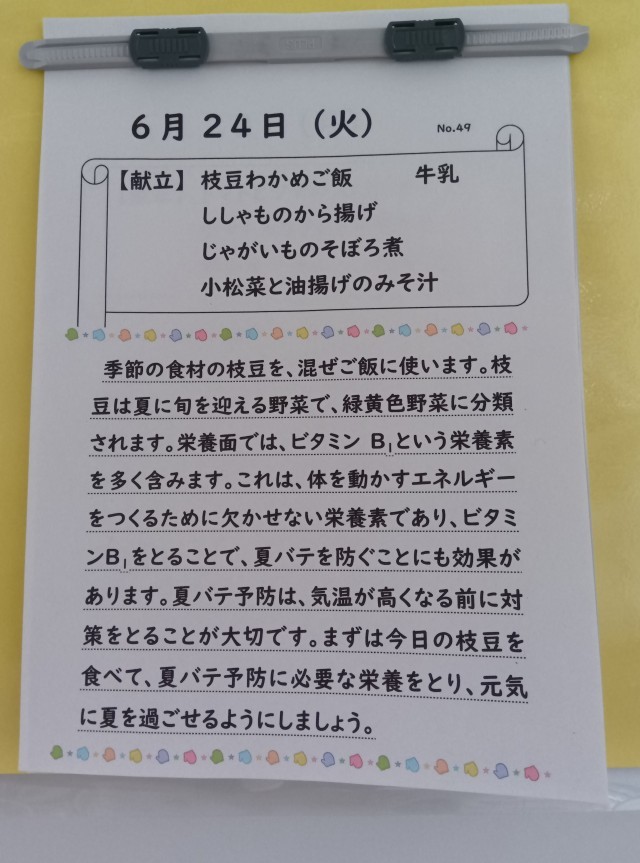 6月24日（火）
No.49
【献立】 枝豆わかめご飯 牛乳
ししゃものから揚げ
じゃがいものそぼろ煮
小松菜と油揚げのみそ汁
季節の食材の枝豆を、混ぜご飯に使います。枝
豆は夏に旬を迎える野菜で、緑黄色野菜に分類
されます。栄養面では、ビタミン B₁という栄養素
を多く含みます。これは、体を動かすエネルギー
をつくるために欠かせない栄養素であり、ビタミ
ンB₁をとることで、夏バテを防ぐことにも効果が
あります。夏バテ予防は、気温が高くなる前に対
策をとることが大切です。まずは今日の枝豆を
食べて、夏バテ予防に必要な栄養をとり、元気
に夏を過ごせるようにしましょう。